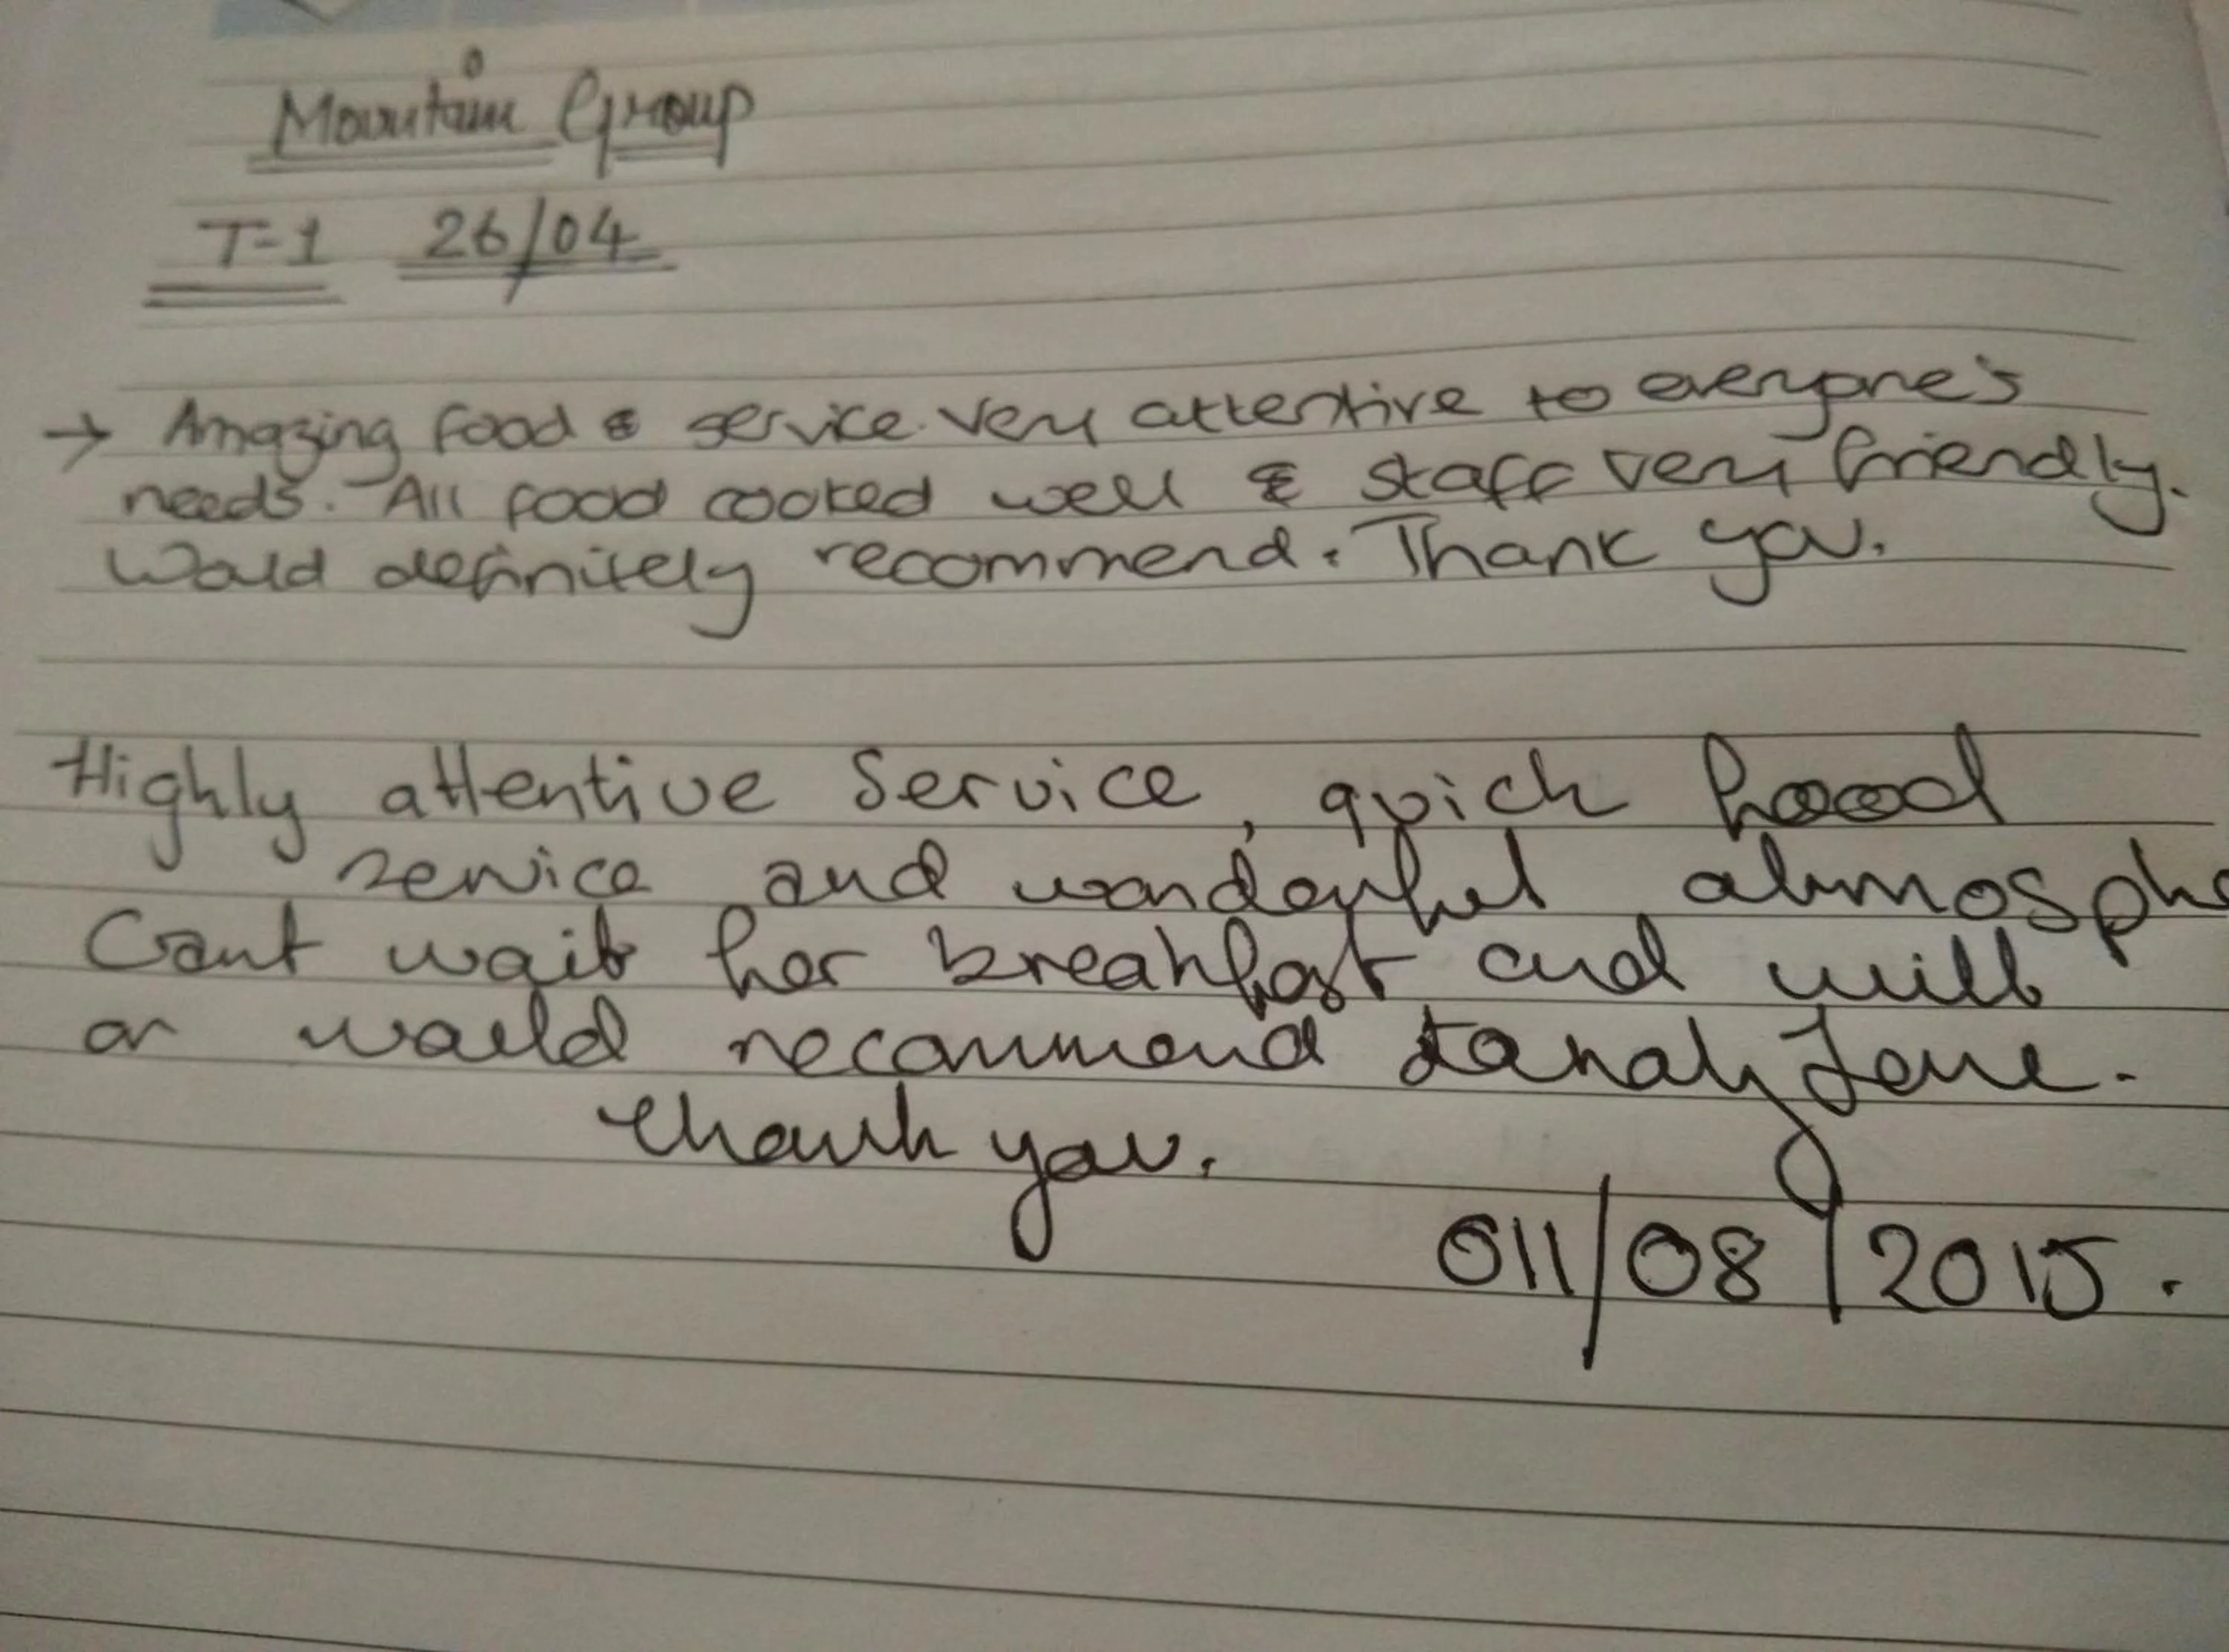 Mountain Group
T-1 26/04
→ Amazing food & service. Very attentive to everyone's
needs. All food cooked well & staff very friendly.
Would definitely recommend. Thank you.
Highly attentive Service, quick food
service and wonderful atmosphe
Cant wait for breakfast and will
or would recommend
thank you.
011/08/2015.